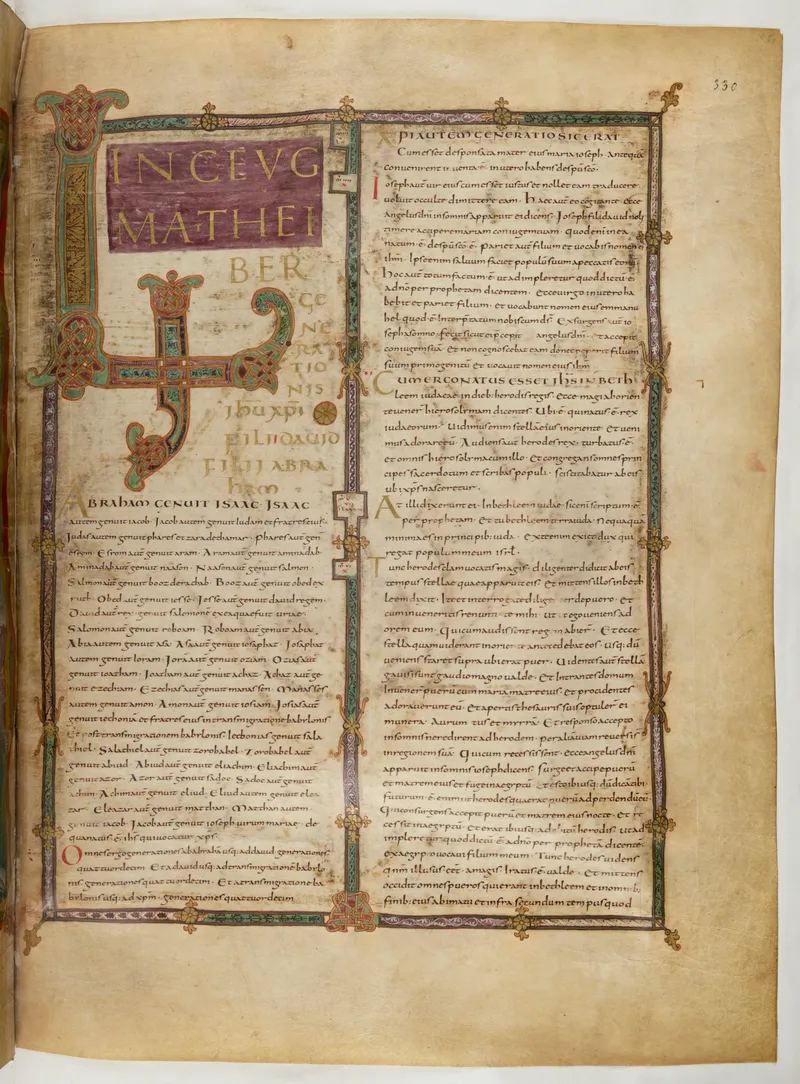 330
INC EVG
MATHEI
LIBER
GE
NE
RA
TIO
NIS
ihu xpi
FILII DAVID
FILII ABRA
ham
ABRAHAM GENUIT ISAAC · ISAAC
autem genuit iacob · Iacob autem genuit iudam et fratres eius ·
Iudas autem genuit phares et zara de thamar · Phares aut̄ gen̄
esrom · Esrom aut̄ genuit aram · Aram aut̄ genuit aminadab ·
Aminadab aut̄ genuit naasōn · Naason aut̄ genuit salmon ·
Salmon aut̄ genuit booz de rachab · Booz aut̄ genuit obed ex
ruth · Obed aut̄ genuit iesse · Iesse aut̄ genuit dauid regem ·
Dauid aut̄ rex genuit salomonē ex ea quae fuit uriae ·
Salomon aut̄ genuit roboam · Roboam aut̄ genuit abia ·
Abia autem genuit asa · Asa aut̄ genuit iosaphat · Iosaphat
autem genuit ioram · Ioram aut̄ genuit oziam · Ozias aut̄
genuit ioatham · Ioatham aut̄ genuit achaz · Achaz aut̄ ge
nuit ezechiam · Ezechias aut̄ genuit manassen · Manasses
autem genuit amon · Amon aut̄ genuit iosiam · Iosias aut̄
genuit iechonia et fratres eius in transmigratione babylonis
Et post transmigrationem babylonis · Iechonias genuit sala
thiel · Salathiel aut̄ genuit zorobabel · Zorobabel aut̄
genuit abiud · Abiud aut̄ genuit eliachim · Eliachim aut̄
genuit azor · Azor aut̄ genuit sadoc · Sadoc aut̄ genuit
achim · Achim aut̄ genuit eliud · Eliud autem genuit elea
zar · Eleazar aut̄ genuit matthan · Matthan autem
genuit iacob · Iacob aut̄ genuit ioseph uirum mariae · de
qua natus ē ihs qui uocatur xps ·
Omnes ergo generationes ab abraha usq; ad dauid generationes
quattuordecim · Et a dauid usq; ad transmigrationē babylo
nis generationes quattuordecim · Et a transmigratione ba
bylonis usq; ad xpm · generationes quattuordecim
XPI AUTEM GENERATIO SIC ERAT
Cum esset desponsata mater eius maria ioseph · Antequā
conuenirent inuenta ē in utero habens de spū sco ·
Ioseph aut̄ uir eius cum esset iustus et nollet eam traducere ·
uoluit occulte dimittere eam · Haec aut̄ eo cogitante · ecce
Angelus dni in somnis apparuit ei dicens · Ioseph fili dauid noli
timere accipere mariam coniugem tuam · quod enim in ea
natum ē · de spū sco ē · Pariet aut̄ filium et uocabis nomen eius
ihm · Ipse enim saluum faciet populū suum a peccatis eorum
Hoc aut̄ totum factum ē · ut adimpleretur quod dictū ē
a dno per prophetam dicentem · Ecce uirgo in utero ha
bebit et pariet filium · et uocabunt nomen eius emmanu
hel quod ē interpretatum nobiscum ds̄ · Exsurgens aut̄ io
seph a somno · fecit sicut ei praecepit angelus dni · et accepit
coniugem suā · Et non cognoscebat eam donec peperit filium
suum primogenitū · Et uocauit nomen eius ihm
CUM ERGO NATUS ESSET IHS IN BETH
leem iudaeae in dieb; herodis regis · Ecce magi ab orien
te uener̄ hierosolymam dicentes · Ubi ē qui natus ē rex
iudaeorum · Uidimus enim stellā eius in oriente · Et ueni
mus adorare eū · Audiens aut̄ herodes rex · turbatus ē ·
et omnis hierosolyma cum illo · Et congregans omnes prin
cipes sacerdotum et scribas populi · sciscitabatur ab eis
ubi xps nasceretur ·
At illi dixerunt ei · In bethleem iudae · Sic enim scriptum ē
per prophetam · Et tu bethleem terra iuda · Nequaqua
minima es in principib; iuda · Ex te enim exiet dux qui
regat populum meum isrl ·
Tunc herodes clam uocatis magis · diligenter didicit ab eis
tempus stellae quae apparuit eis · Et mittens illos in beth
leem dixit · Ite et interrogate diliḡter de puero · Et
cum inueneritis renuntiate mihi · ut et ego ueniens ad
orem eum · Qui cum audissent regem abier̄ · Et ecce
stella quam uiderant in oriente antecedebat eos · usq; dū
ueniens staret supra ubi erat puer · Uidentes aut̄ stellā
gauisi sunt gaudio magno ualde · Et intrantes domum
inuener̄ puerū cum maria matre eius · et procidentes
adorauerunt eū · Et apertis thesauris suis optuler̄ ei
munera · Aurum tus et myrrā · Et responso accepto
in somnis ne redirent ad herodem · per aliā uiam reuersi st̄
in regionem suā · Qui cum recessissent · ecce angelus dni
apparuit in somnis ioseph dicens · Surge et accipe puerū
et matrem eius et fuge in aegyptū · et esto ibi usq; dū dicā tibi
futurum ē enim ut herodes quaerat puerū ad perdendū eū
Qui consurgens accepit puerū et matrem eius nocte · Et re
cessit in aegyptū · Et erat ibi usq; ad obitū herodis · ut ad
impleretur quod dictū ē a dno per prophetā dicentē
ex aegypto uocaui filium meum · Tunc herodes uidens
qnm illusus eet a magis · Iratus ē ualde · Et mittens
occidit omnes pueros qui erant in bethleem et in omnib;
finib; eius a bimatu et infra secundum tempus quod